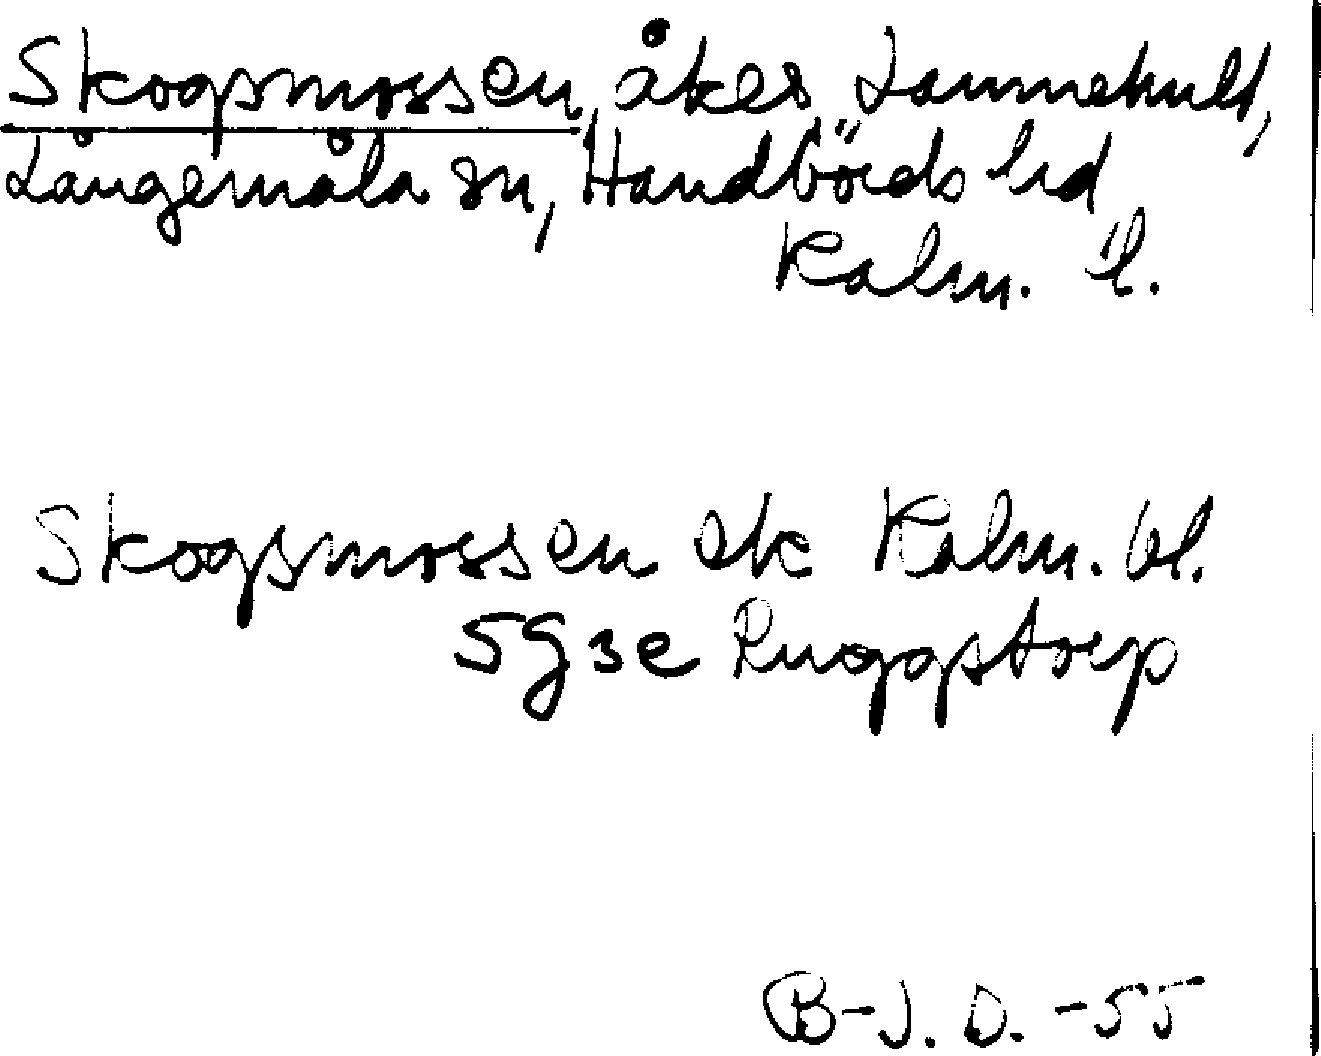 Skogsmossen, åker, Lammekult,
Långemåla sn, Handbörds hd
Kalm. l.
Skogsmossen ek Kalm. bl.
5g3e Ruggstorp
B-J. D. -55